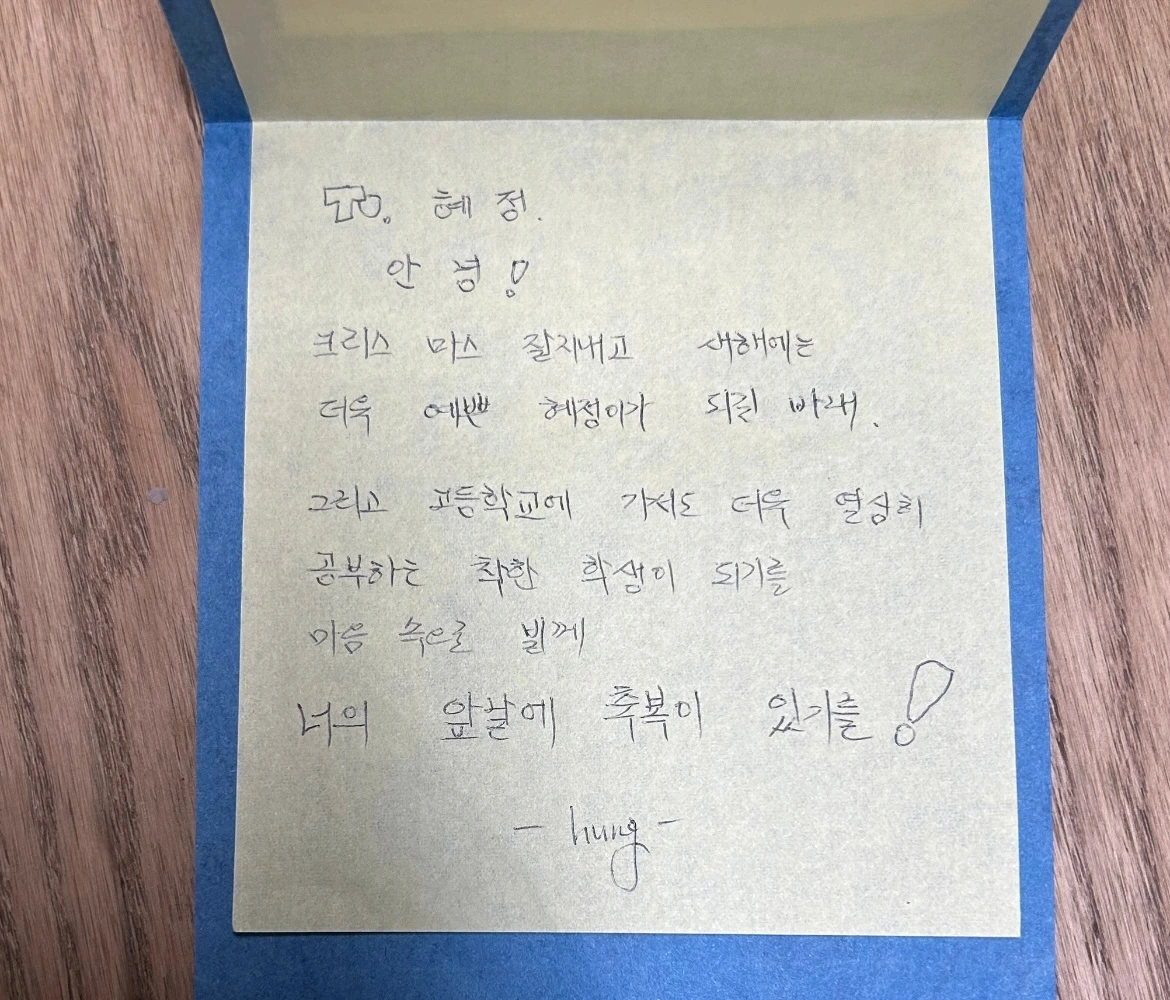 To. 혜정.
안녕!
크리스 마스 잘지내고 새해에는
더욱 예쁜 혜정이가 되길 바래.
그리고 고등학교에 가서도 더욱 열심히
공부하는 착한 학생이 되기를
마음 속으로 빌께
너의 앞날에 축복이 있기를!
- hung -